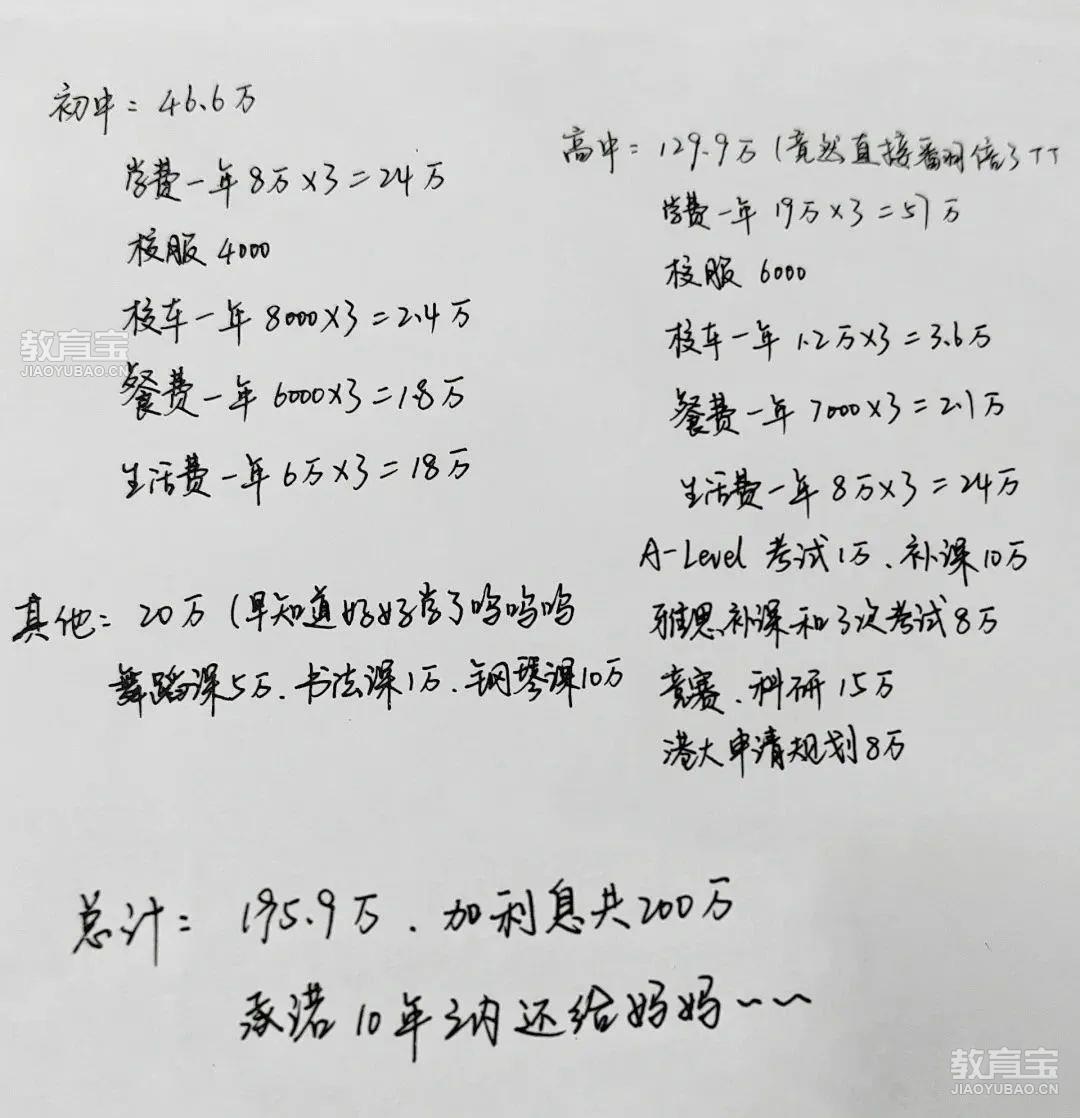 初中：46.6万
学费一年8万×3=24万
校服4000
校车一年8000×3=2.4万
餐费一年6000×3=1.8万
生活费一年6万×3=18万
高中：129.9万（竟然直接翻倍了TT
学费一年19万×3=57万
校服6000
校车一年1.2万×3=3.6万
餐费一年7000×3=2.1万
生活费一年8万×3=24万
A-Level考试1万、补课10万
雅思补课和3次考试8万
竞赛、科研15万
港大申请规划8万
其他：20万（早知道好好学了呜呜呜
舞蹈课5万、书法课1万、钢琴课10万
总计：195.9万、加利息共200万
承诺10年之内还给妈妈~~
教育宝
JIAOYUBAO.CN
教育宝
JIAOYUBAO.CN